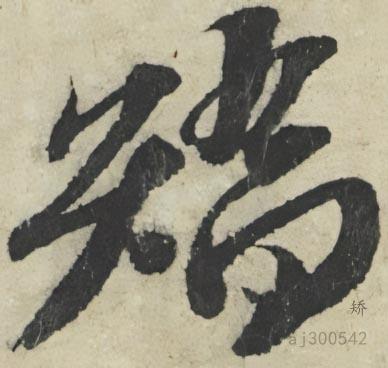 矯
矫
aj300542